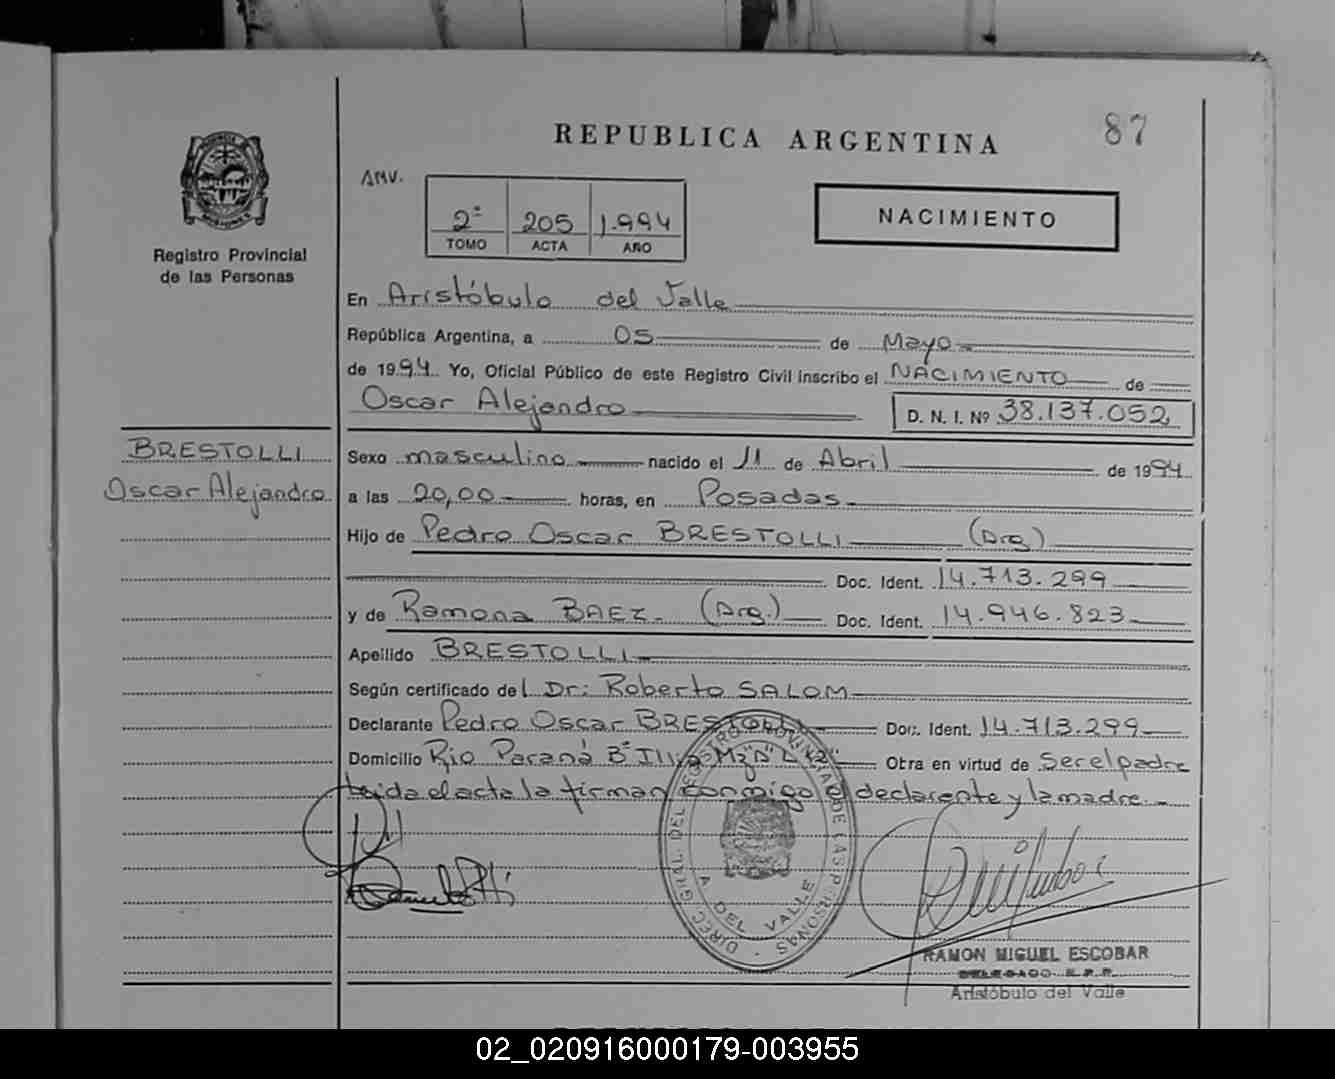 87
REPUBLICA ARGENTINA
PROVINCIA DE
MISIONES
Registro Provincial
de las Personas
AMV.
2º 205 1.994
TOMO ACTA AÑO
NACIMIENTO
En Aristóbulo del Valle
República Argentina, a 05 de Mayo
de 1994. Yo, Oficial Público de este Registro Civil inscribo el NACIMIENTO de
Oscar Alejandro D. N. I. Nº 38.137.052
BRESTOLLI
Oscar Alejandro
Sexo masculino nacido el 11 de Abril de 1994
a las 20,00 horas, en Posadas
Hijo de Pedro Oscar BRESTOLLI (Arg)
Doc. Ident. 14.713.299
y de Ramona BAEZ. (Arg.) Doc. Ident. 14.946.823
Apellido BRESTOLLI
Según certificado del Dr: Roberto SALOM
Declarante Pedro Oscar BRESTOLLI Doc. Ident. 14.713.299
Domicilio Rio Paraná Bº Illia Mz "D" L Otra en virtud de ser el padre
leida el acta la firman conmigo el declarante y la madre.
DIREC. GRAL. DEL REGISTRO PROVINCIAL DE LAS PERSONAS
A. DEL VALLE
RAMON MIGUEL ESCOBAR
DELEGADO R.P.P.
Aristóbulo del Valle
02_020916000179-003955